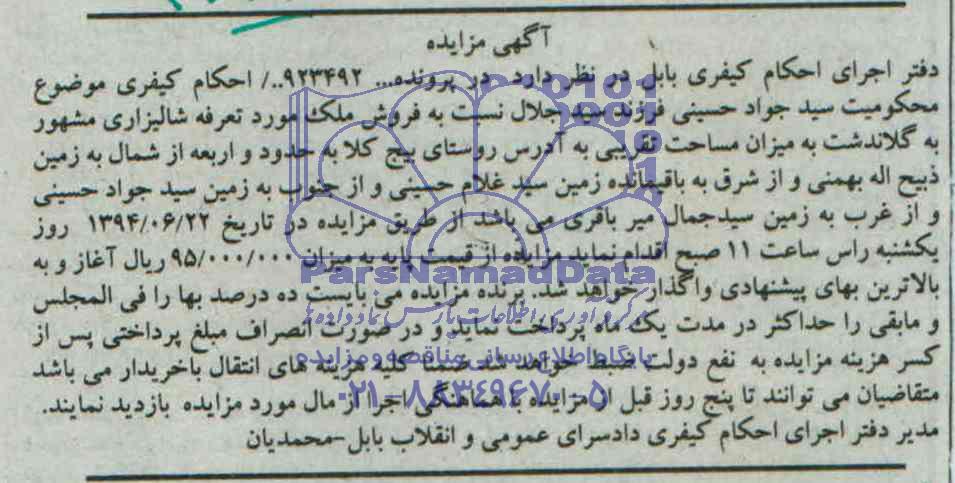 آگهی مزایده
دفتر اجرای احکام کیفری بابل در نظر دارد در پرونده... ۹۲۳۴۹۲../ احکام کیفری موضوع
محکومیت سید جواد حسینی فرزند سید جلال نسبت به فروش ملک مورد تعرفه شالیزاری مشهور
به گلاندشت به میزان مساحت تقریبی به آدرس روستای پیج کلا به حدود و اربعه از شمال به زمین
ذبیح اله بهمنی و از شرق به باقیمانده زمین سید غلام حسینی و از جنوب به زمین سید جواد حسینی
و از غرب به زمین سیدجمال میر باقری می باشد از طریق مزایده در تاریخ ۱۳۹۴/۰۶/۲۲ روز
یکشنبه راس ساعت ۱۱ صبح اقدام نماید مزایده از قیمت پایه به میزان ۹۵/۰۰۰/۰۰۰ ریال آغاز و به
بالاترین بهای پیشنهادی واگذار خواهد شد. برنده مزایده می بایست ده درصد بها را فی المجلس
و مابقی را حداکثر در مدت یک ماه پرداخت نماید و در صورت انصراف مبلغ پرداختی پس از
کسر هزینه مزایده به نفع دولت ضبط خواهد شد ضمنا کلیه هزینه های انتقال باخریدار می باشد
متقاضیان می توانند تا پنج روز قبل از مزایده با هماهنگی اجرا از مال مورد مزایده بازدید نمایند.
مدیر دفتر اجرای احکام کیفری دادسرای عمومی و انقلاب بابل-محمدیان
ParsNamadData
پایگاه اطلاع رسانی مناقصه و مزایده
۰۲۱-۸۸۳۴۹۶۷۰-۵